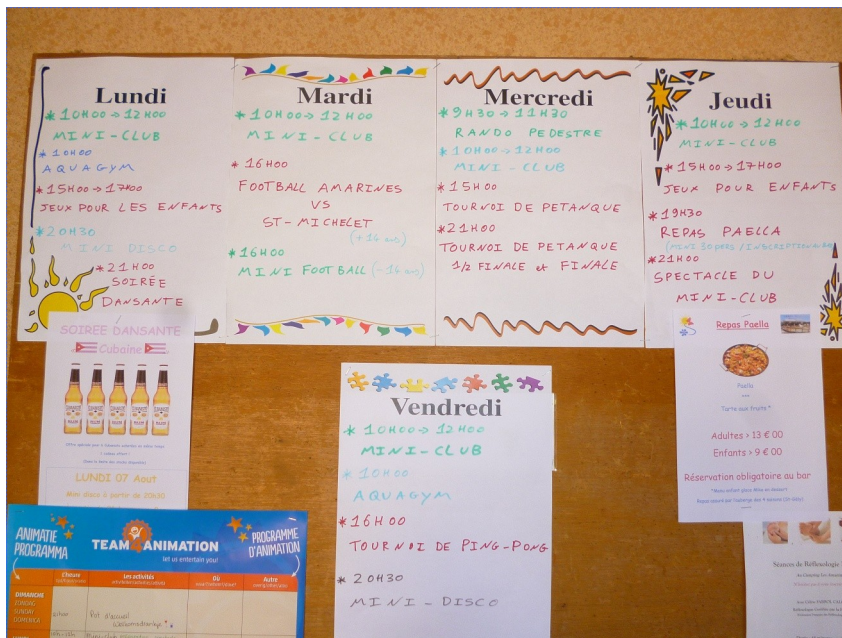 Lundi
* 10H00 → 12H00
MINI-CLUB
* 10H00
AQUAGYM
* 15H00 → 17H00
JEUX POUR LES ENFANTS
* 20H30
MINI DISCO
* 21H00
SOIRÉE
DANSANTE
Mardi
* 10H00 → 12H00
MINI-CLUB
* 16H00
FOOTBALL AMARINES
VS
ST-MICHELET
(+14 ans)
* 16H00
MINI FOOTBALL (-14 ans)
Mercredi
* 9H30 → 11H30
RANDO PEDESTRE
* 10H00 → 12H00
MINI-CLUB
* 15H00
TOURNOI DE PETANQUE
* 21H00
TOURNOI DE PETANQUE
1/2 FINALE et FINALE
Jeudi
* 10H00 → 12H00
MINI-CLUB
* 15H00 → 17H00
JEUX POUR ENFANTS
* 19H30
REPAS PAELLA
(MINI 30 PERS / INSCRIPTION
* 21H00
SPECTACLE DU
MINI-CLUB
SOIREE DANSANTE
Cubaine
LUNDI 07 Aout
Mini disco à partir de 20h30
Vendredi
* 10H00 → 12H00
MINI-CLUB
* 10H00
AQUAGYM
* 16H00
TOURNOI DE PING-PONG
* 20H30
MINI-DISCO
Repas Paella
Paella
***
Tarte aux fruits *
Adultes > 13 € 00
Enfants > 9 € 00
Réservation obligatoire au bar
ANIMATIE
PROGRAMMA
TEAM 4 ANIMATION
let us entertain you!
PROGRAMME
D'ANIMATION
L'heure
Les activités
Où
Autre
DIMANCHE
ZONDAG
SUNDAY
DOMENICA
Pot d'accueil
Séances de Réflexologie